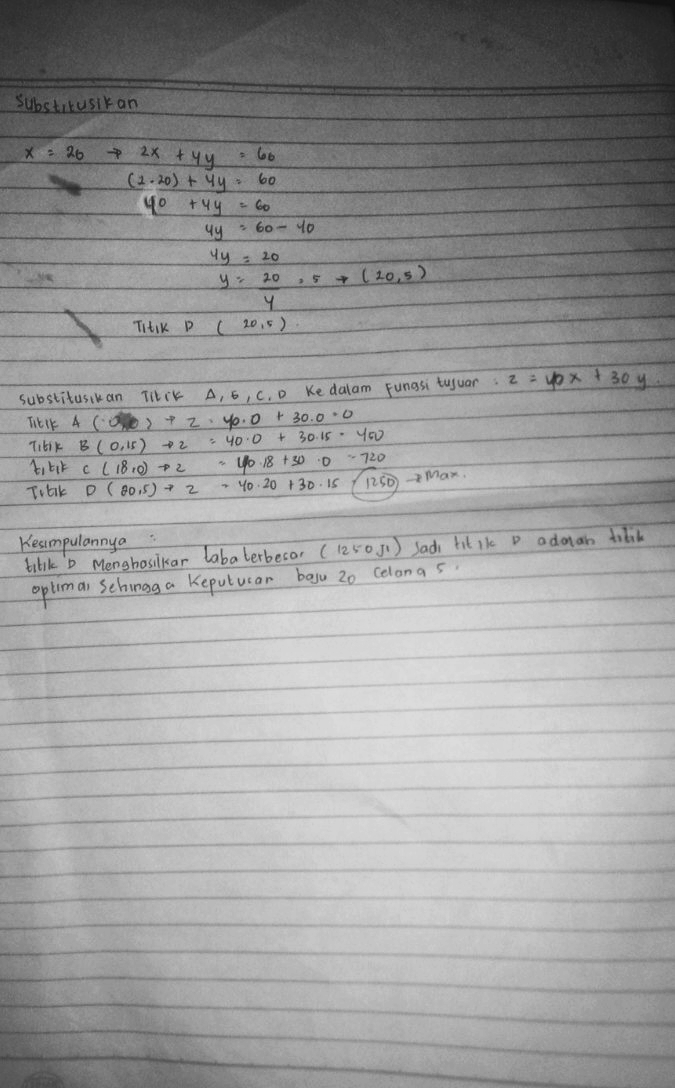 Substitusikan
x = 20 → 2x + 4y = 60
(2.20) + 4y = 60
40 + 4y = 60
4y = 60 - 40
4y = 20
y = 20/4 = 5 → (20,5)
Titik D (20,5).
Substitusikan Titik A, B, C, D Ke dalam Fungsi tujuan : z = 40x + 30y.
Titik A (0,0) → z = 40.0 + 30.0 = 0
Titik B (0,15) → z = 40.0 + 30.15 = 450
titik C (18,0) → z = 40.18 + 30.0 = 720
Titik D (20,5) → z = 40.20 + 30.15 = 1250 → Max.
Kesimpulannya :
titik D Menghasilkan laba terbesar (1250 Jt) Jadi titik D adalah titik
optimal Sehingga Keputusan baju 20 Celana 5.